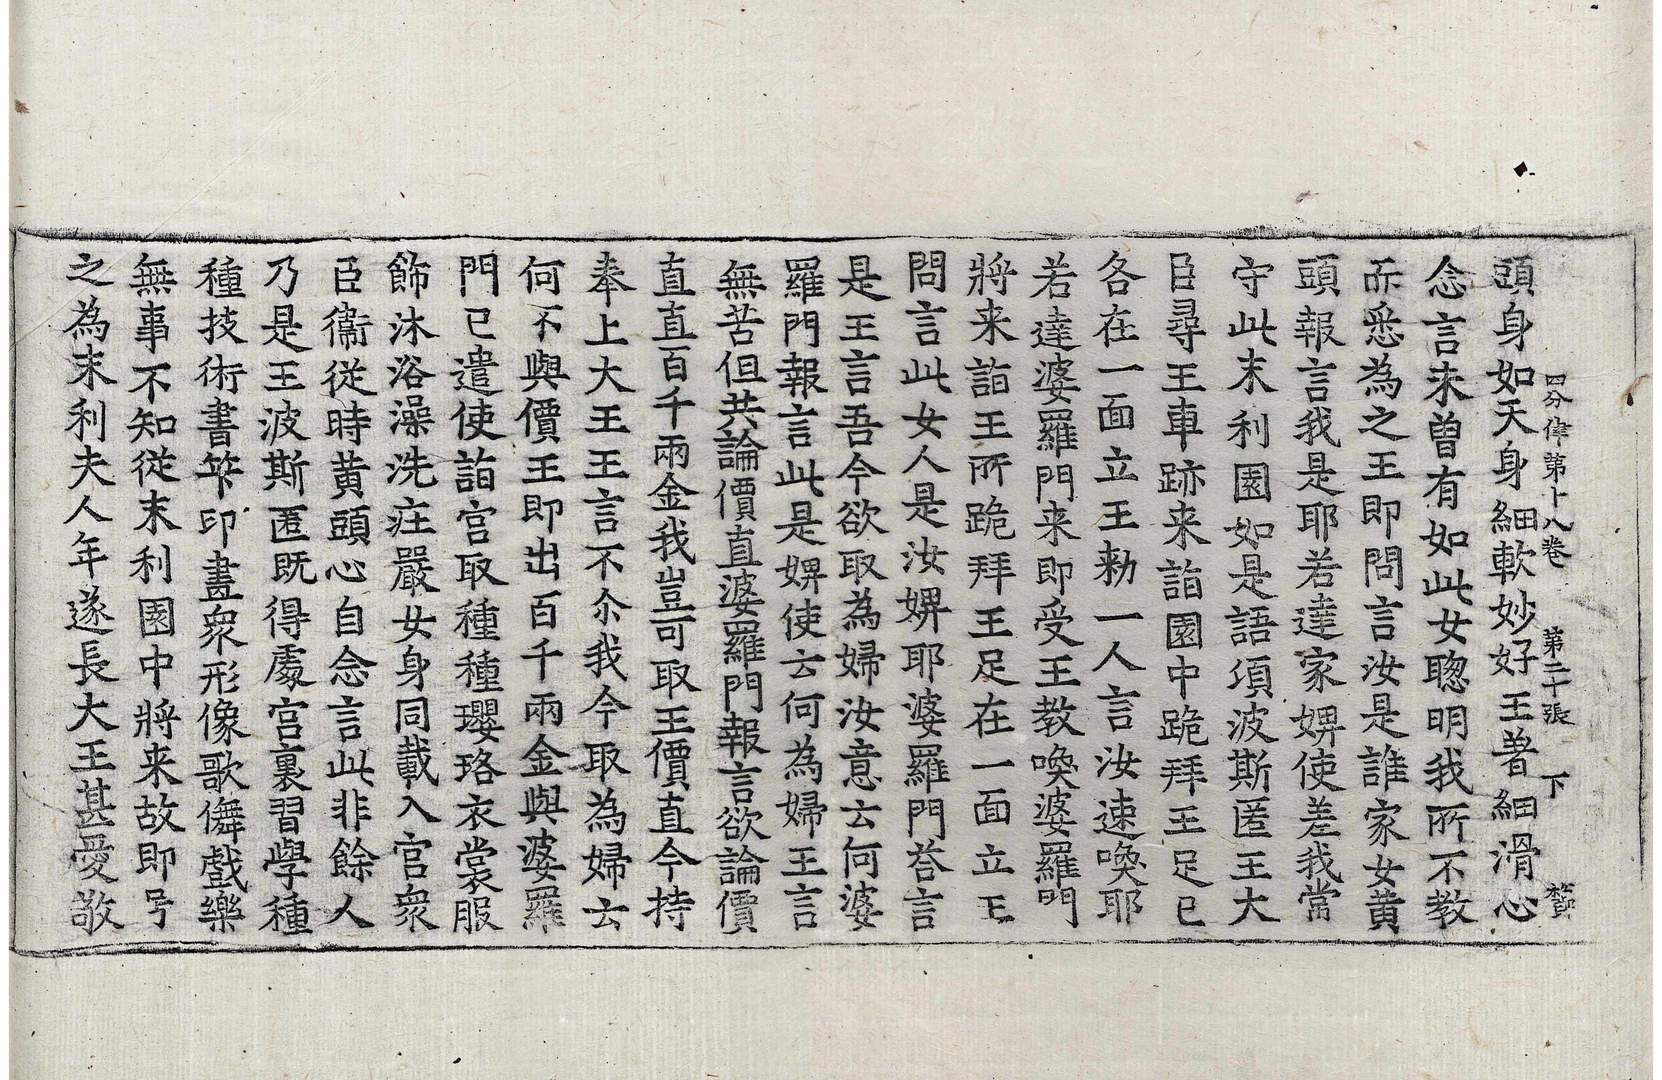 四分律第十八卷 第二十張 下 贊
頭身如天身細軟妙好王著細滑心
念言未曾有如此女聰明我所不教
而悉為之王即問言汝是誰家女黃
頭報言我是耶若達家婢使差我當
守此末利園如是語須波斯匿王大
臣尋王車跡来詣園中跪拜王足已
各在一面立王勑一人言汝速喚耶
若達婆羅門来即受王教喚婆羅門
將来詣王所跪拜王足在一面立王
問言此女人是汝婢耶婆羅門荅言
是王言吾今欲取為婦汝意云何婆
羅門報言此是婢使云何為婦王言
無苦但共論價直婆羅門報言欲論價
直直百千兩金我豈可取王價直今持
奉上大王王言不尒我今取為婦云
何不與價王即出百千兩金與婆羅
門已遣使詣宮取種種瓔珞衣裳服
飾沐浴澡洗莊嚴女身同載入宮衆
臣衞從時黃頭心自念言此非餘人
乃是王波斯匿既得處宮裏習學種
種技術書筭印畫衆形像歌儛戲樂
無事不知從末利園中將来故即号
之為末利夫人年遂長大王甚愛敬